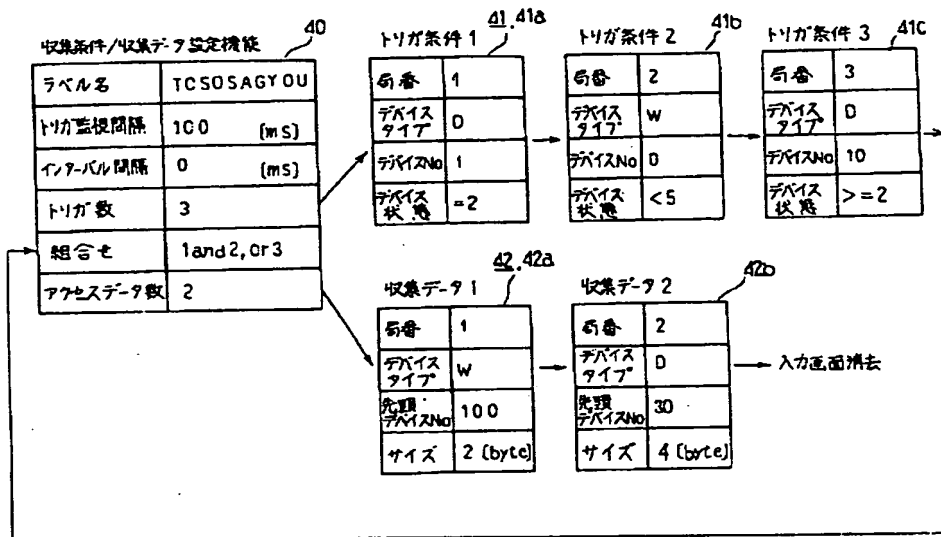 収集条件/収集データ設定機能
40
ラベル名 TCSOSAGYOU
トリガ監視間隔 100 [ms]
インターバル間隔 0 [ms]
トリガ数 3
組合せ 1and2,or3
アクセスデータ数 2
トリガ条件1
41,41a
局番 1
デバイスタイプ D
デバイスNo 1
デバイス状態 =2
トリガ条件2
41b
局番 2
デバイスタイプ W
デバイスNo 0
デバイス状態 <5
トリガ条件3
41c
局番 3
デバイスタイプ D
デバイスNo 10
デバイス状態 >=2
収集データ1
42,42a
局番 1
デバイスタイプ W
先頭デバイスNo 100
サイズ 2 [byte]
収集データ2
42b
局番 2
デバイスタイプ D
先頭デバイスNo 30
サイズ 4 [byte]
入力画面消去